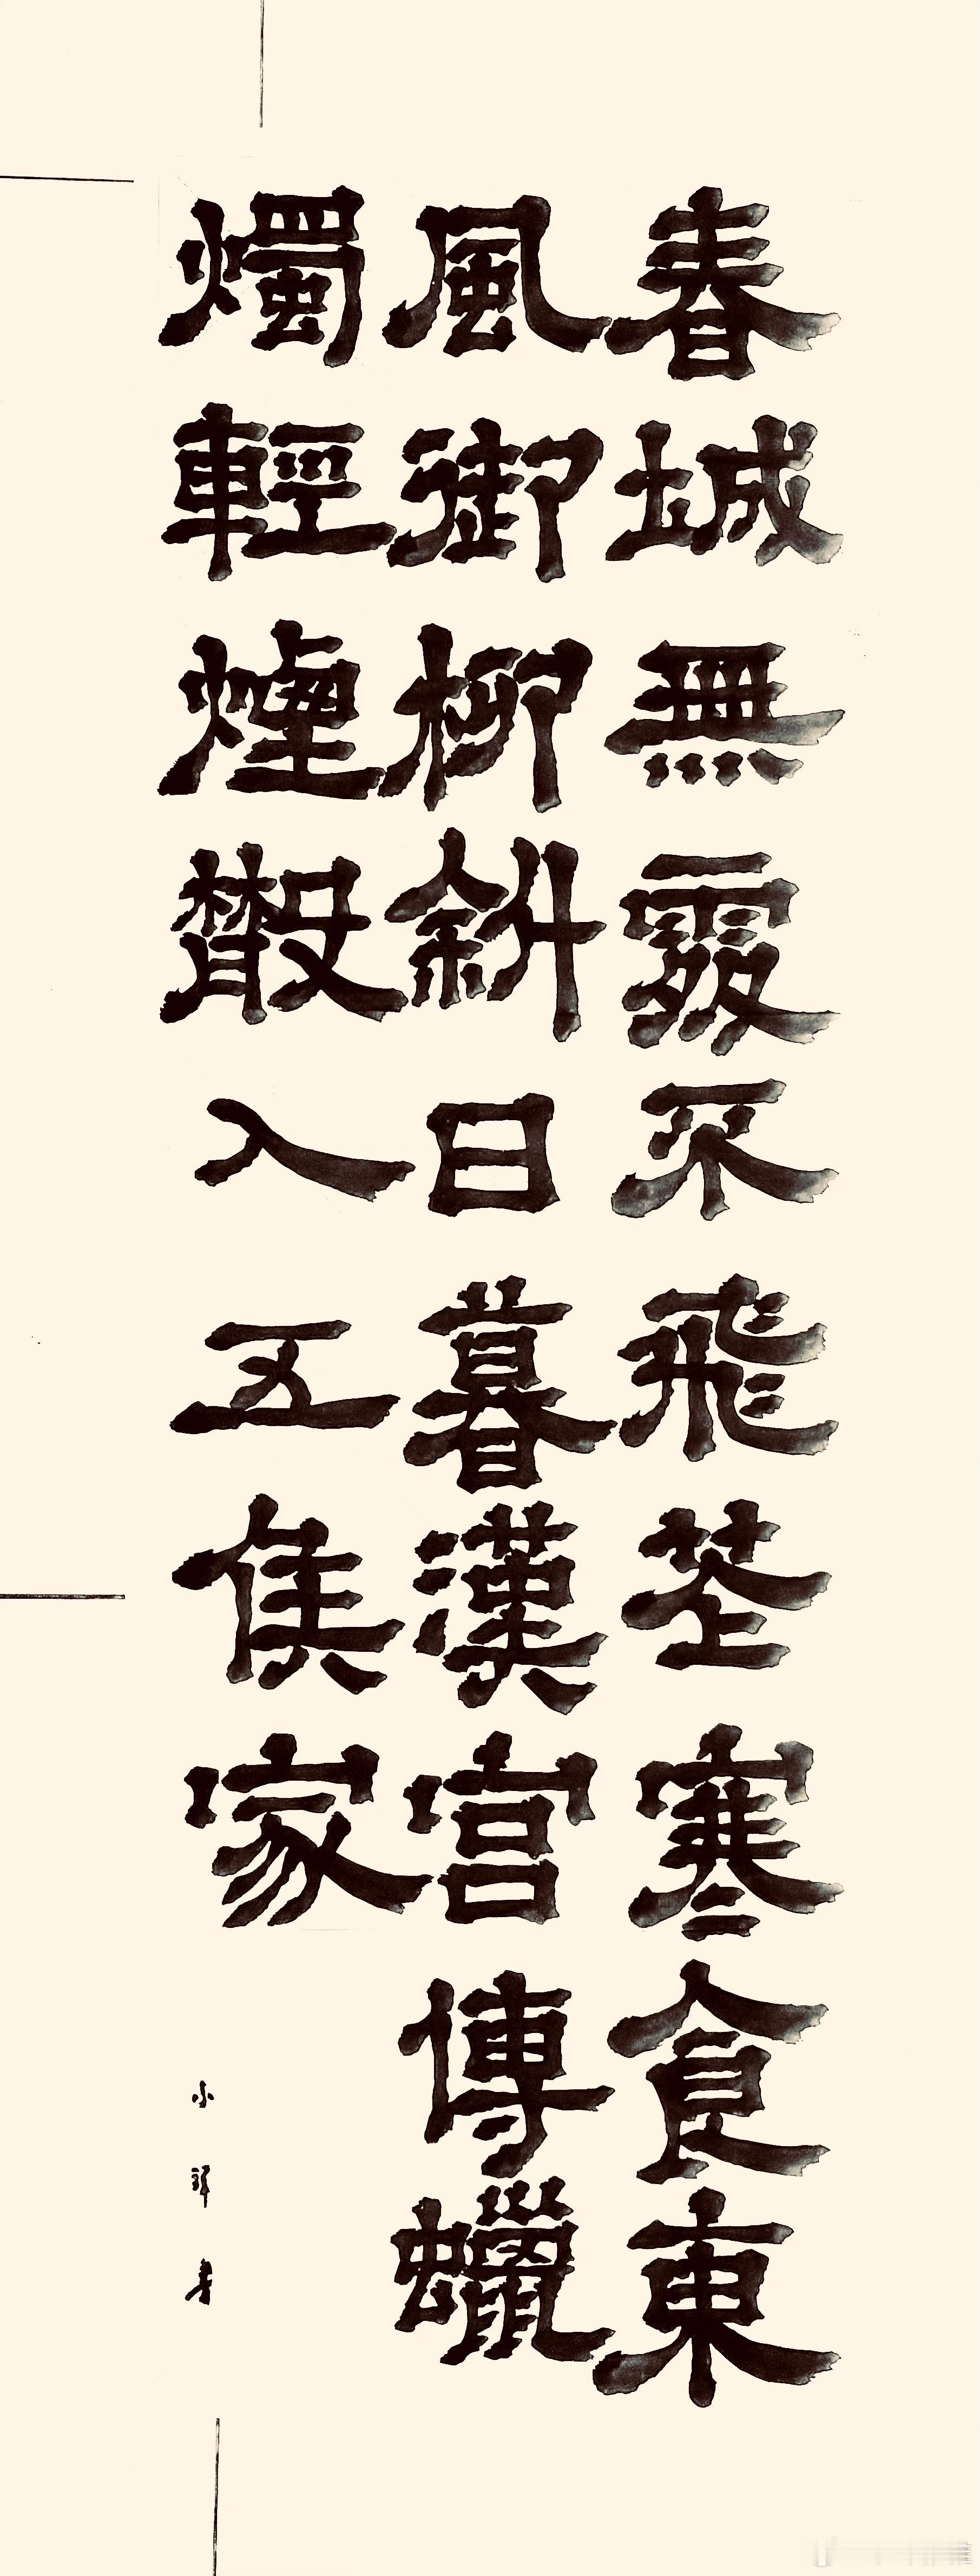 春城無處不飛花寒食東
風御柳斜日暮漢宮傳蠟
燭輕煙散入五侯家
小祥書